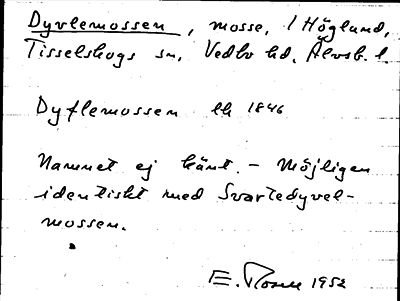 Dyvlemossen, mosse, i Höglund,
Tisselskogs sn, Vedbo hd, Älvsb. l.
Dyflemossen lh 1846
Namnet ej känt. - Möjligen
identiskt med Svartedyvel-
mossen.
E. 1952